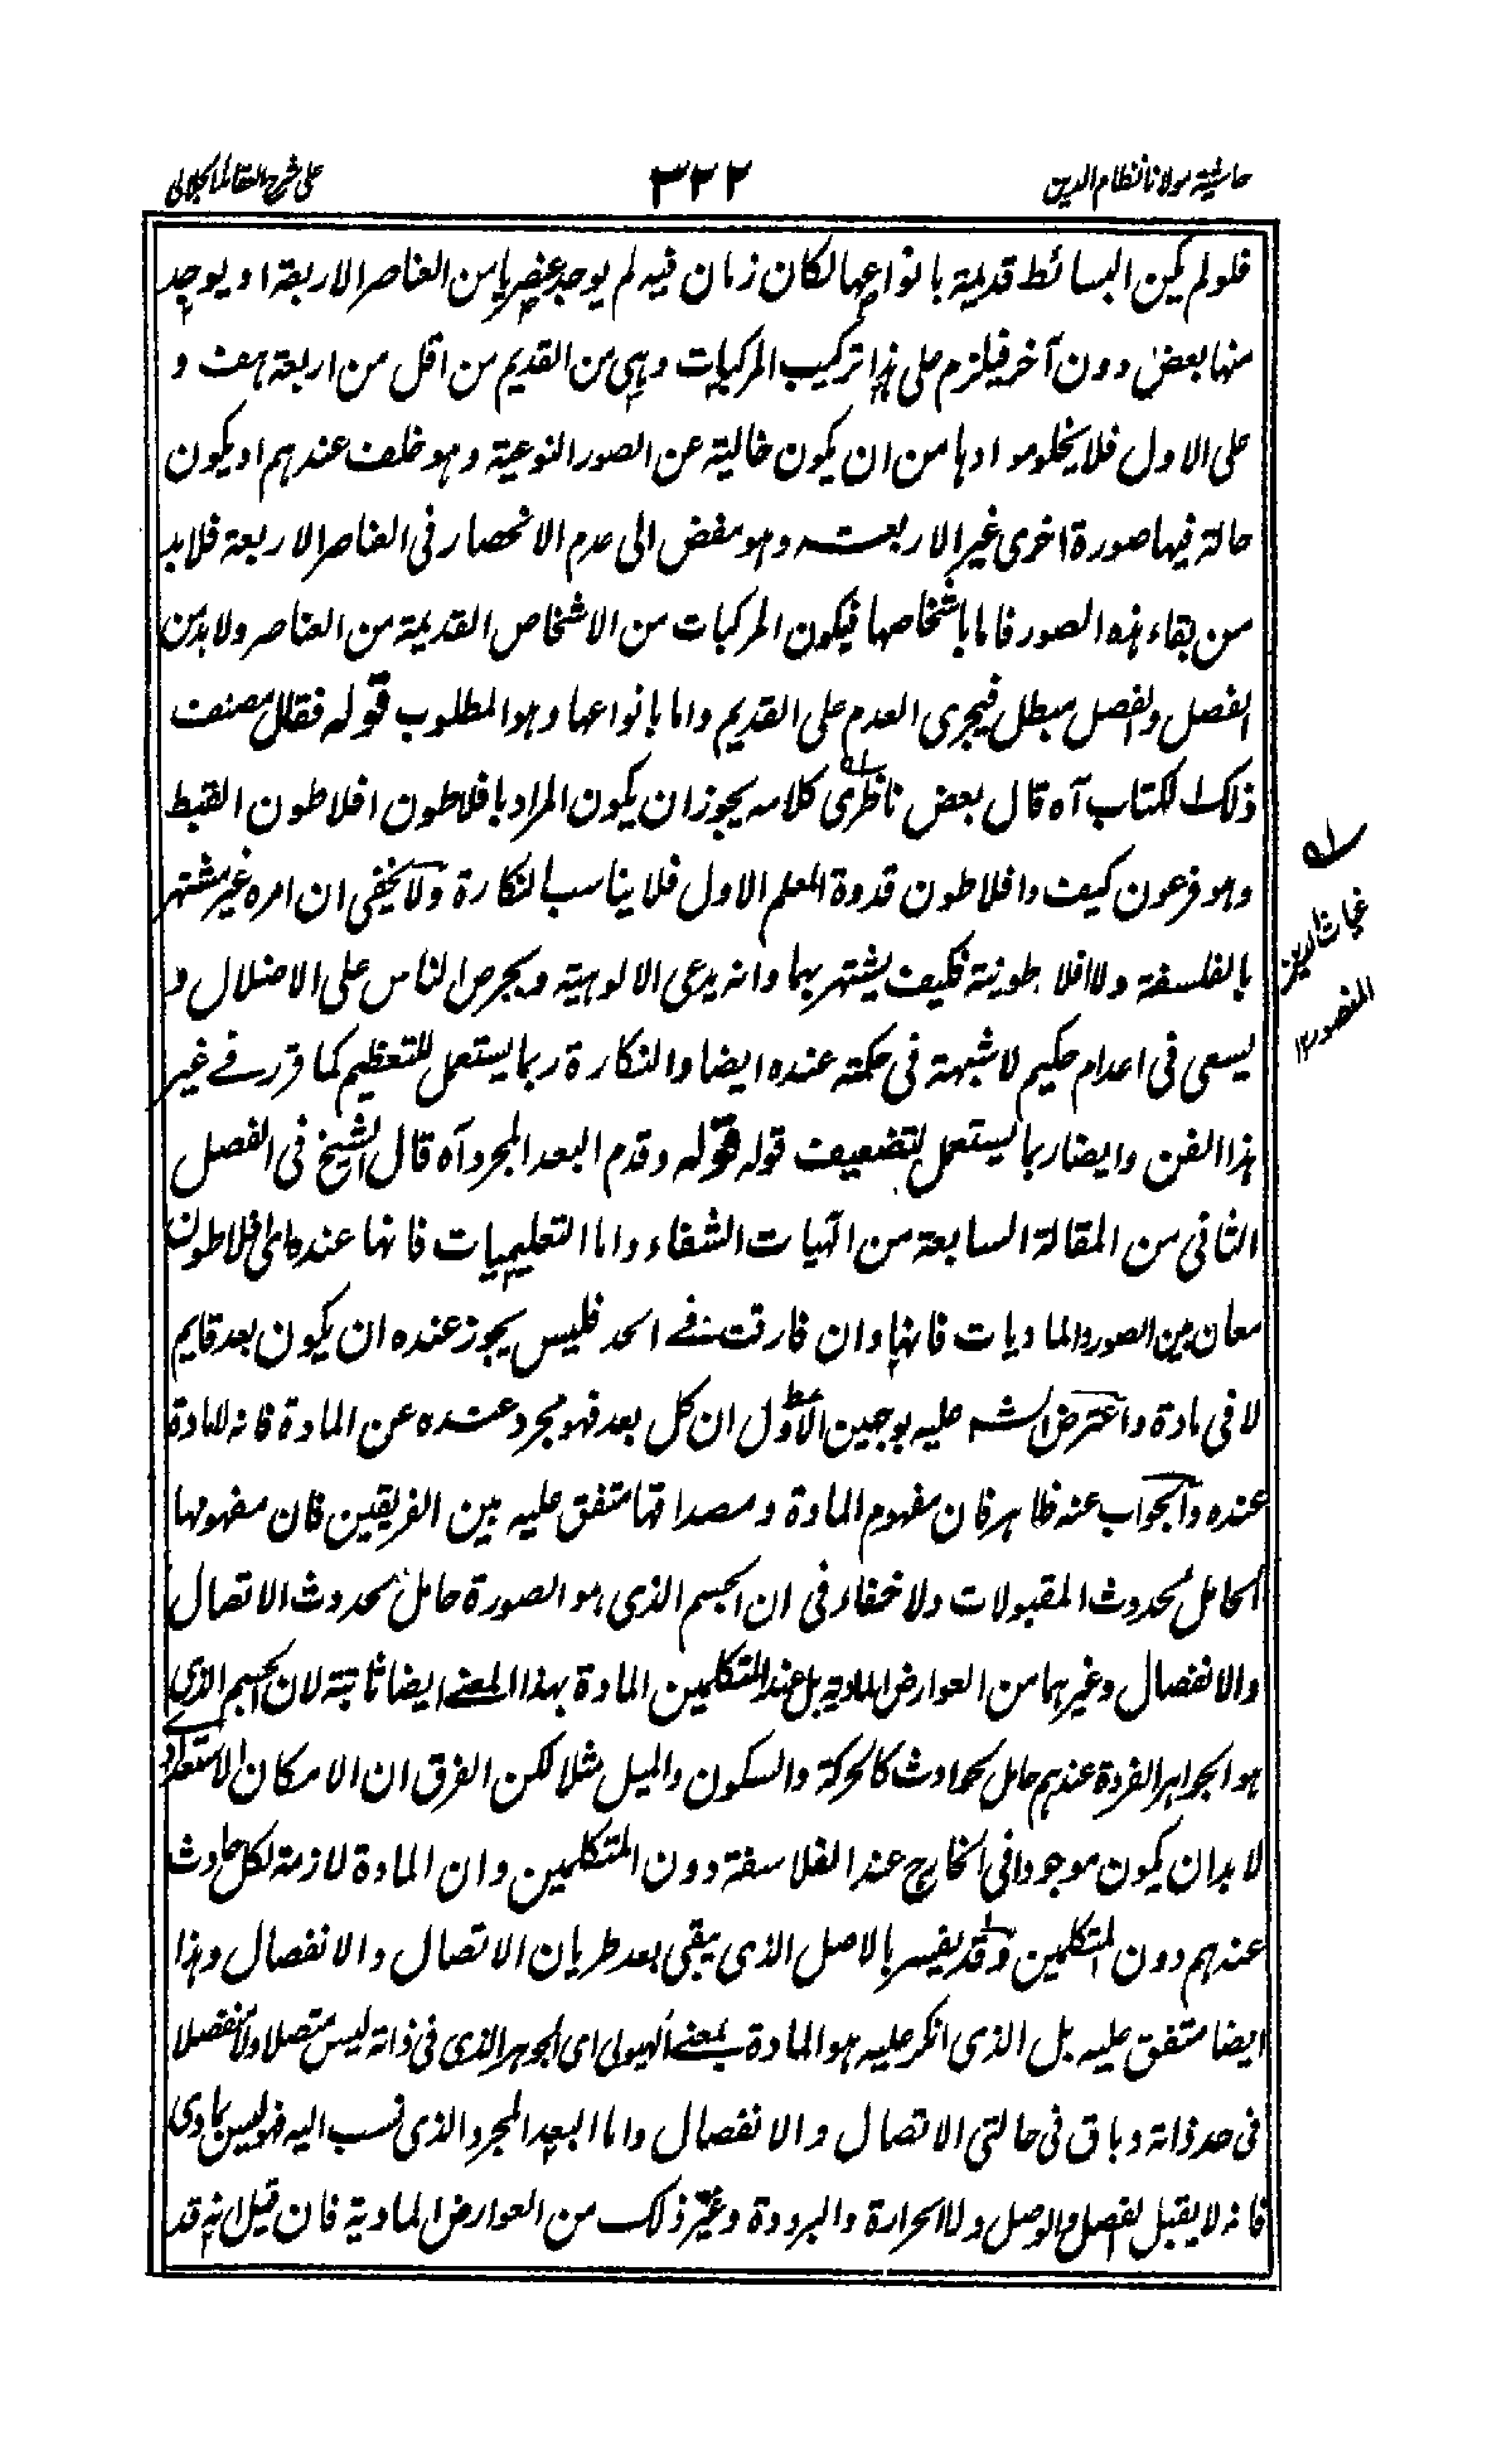 حاشية مولانا نظام الدين
٣٢٢
على شرح العقائد الجلالي
فلو لم يكن البسائط قديمة بانواعها لكان زمان فيه لم يوجد عنصر ما من العناصر الاربعة او يوجد
منها بعض دون آخر فيلزم على هذا تركيب المركبات وهي من القديم من اقل من اربعة هف و
على الاول فلا يخلو موادها من ان يكون خالية عن الصور النوعية وهو خلف عندهم او يكون
حالة فيها صورة اخرى غير الاربعة وهو مفض الى عدم الانحصار في العناصر الاربعة فلابد
من بقاء هذه الصور فاما باشخاصها فيكون المركبات من الاشخاص القديمة من العناصر ولابد من
الفصل والفصل مبطل فيجرى العدم على القديم واما بانواعها وهو المطلوب قوله فقال مصنف
ذلك الكتاب آه قال بعض ناظرى كلامه يجوز ان يكون المراد بافلاطون افلاطون القبط
وهو فرعون كيف وافلاطون قدوة المعلم الاول فلا يناسب النكارة ولا يخفى ان امره غير مشتهر
بالفلسفة ولا افلاطونية فكيف يشتهر بهما وانه يدعى الالوهية ويحرص الناس على الاضلال و
يسعى في اعدام حكيم لا شبهة في حكمته عنده ايضا والنكارة ربما يستعمل للتعظيم كما قرر في غير
هذا الفن وايضا ربما يستعمل لتضعيف قوله قوله وقدم البعد المجرد آه قال الشيخ في الفصل
الثاني من المقالة السابعة من الهيات الشفاء واما التعليميات فانها عنده اى افلاطون
معان بين الصور والماديات فانها وان فارقت في الحد فليس يجوز عنده ان يكون بعد قايم
لا في مادة واعترض الشه عليه بوجهين الاول ان كل بعد فهو مجرد عنده عن المادة فانه لا مادة
عنده والجواب عنه ظاهر فان مفهوم المادة ومصداقها متفق عليه بين الفريقين فان مفهومها
الحامل لحدوث المقبولات ولا خفاء في ان الجسم الذى هو الصورة حامل لحدوث الاتصال
والانفصال وغيرهما من العوارض المادية بل عند المتكلمين المادة بهذا المعنى ايضا ثابتة لان الجسم الذى
هو الجواهر الفردة عندهم حامل لحوادث كالحركة والسكون والميل مثلا لكن الفرق ان الامكان الاستعدادى
لابد ان يكون موجودا في الخارج عند الفلاسفة دون المتكلمين وان المادة لازمة لكل حادث
عندهم دون المتكلمين وقد يفسر بالاصل الذى يبقى بعد طريان الاتصال والانفصال وهذا
ايضا متفق عليه بل الذى انكر عليه هو المادة بمعنى الهيولى اى الجوهر الذى في ذاته ليس متصلا ولا منفصلا
في حد ذاته وباق في حالتى الاتصال والانفصال واما البعد المجرد الذى نسب اليه فهو ليس بمادى
فانه لا يقبل الفصل والوصل ولا الحرارة والبرودة وغير ذلك من العوارض المادية فان قيل انه قد
غياث الدين
المنصور ١٢